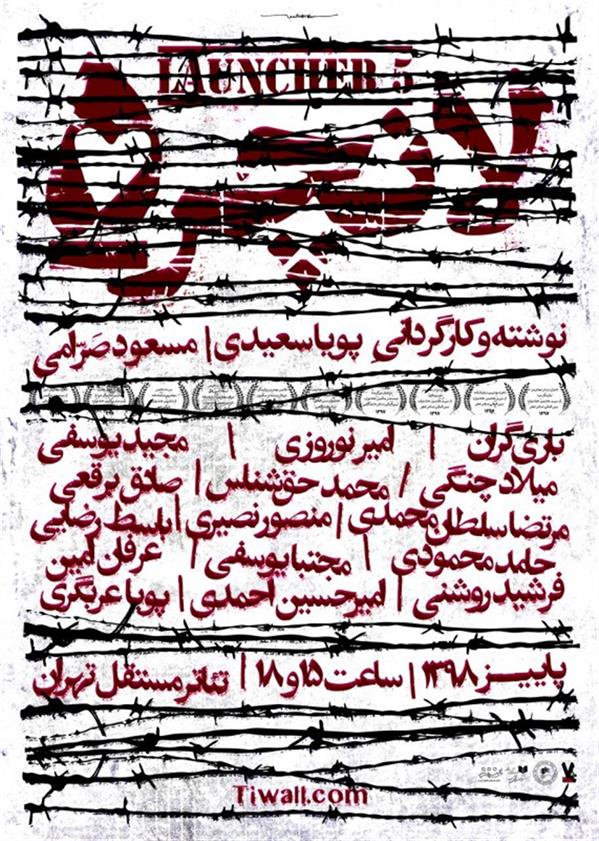 LAUNCHER 5
لانچر ۵
نوشته و کارگردانیِ پویا سعیدی | مسعود صَرامی
بازی‌گران | امیر نوروزی | مجید یوسفی
میلاد چنگی / محمد حق‌شناس | صادق برقعی
مرتضا سلطان محمدی | منصور نصیری | باسط رضایی
حامد محمودی | مجتبا یوسفی | عرفان امین
فرشید روشنی | امیرحسین احمدی | پویا عربگری
پاییز ۱۳۹۸ | ساعت ۱۵ و ۱۸ | تئاتر مستقل تهران
Tiwall.com